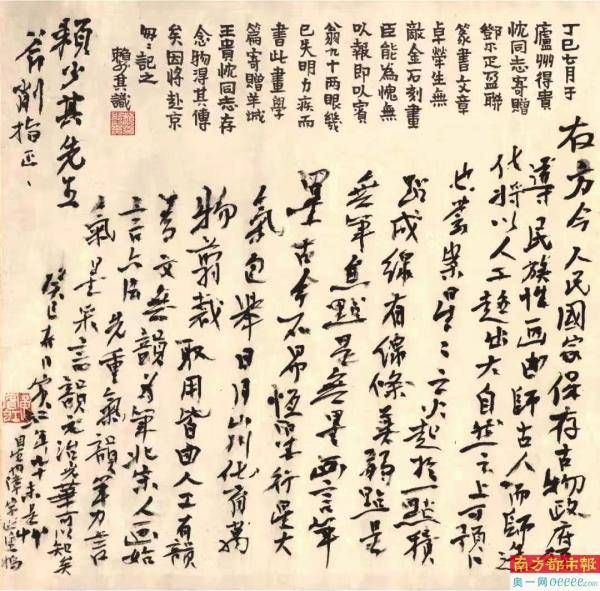 丁巳七月于
廬州得貴
忱同志寄贈
鄧尔疋盈聯
篆書文章
卓犖生無
敵金石刻畫
臣能為愧無
以報即以賓
翁九十兩眼幾
已失明力疾而
書此畫學
篇寄贈羊城
王貴忱同志存
念物得其傳
矣因將赴京
匆々記之
賴少其識
右方今人民國家保存古物政府
導民族性画由師古人而師造
化將以人工超出大自然之上可預卜
也藝業星々之火起於一點積
點成線有線條美弱點是
無筆焦點是無墨画言筆
墨古今不易恆行星大
氣包舉日月山川化育萬
物剪裁取用皆由人工有韻
為文無韻為筆北宋人画始
言六法先重氣韻筆力言
氣墨采言韻光華可以知矣
癸巳春日賓虹年九十未是艸
目生內障筆此塗鴉
賴少其先生
削指正、
南方都市報
奥一网oeeee.com